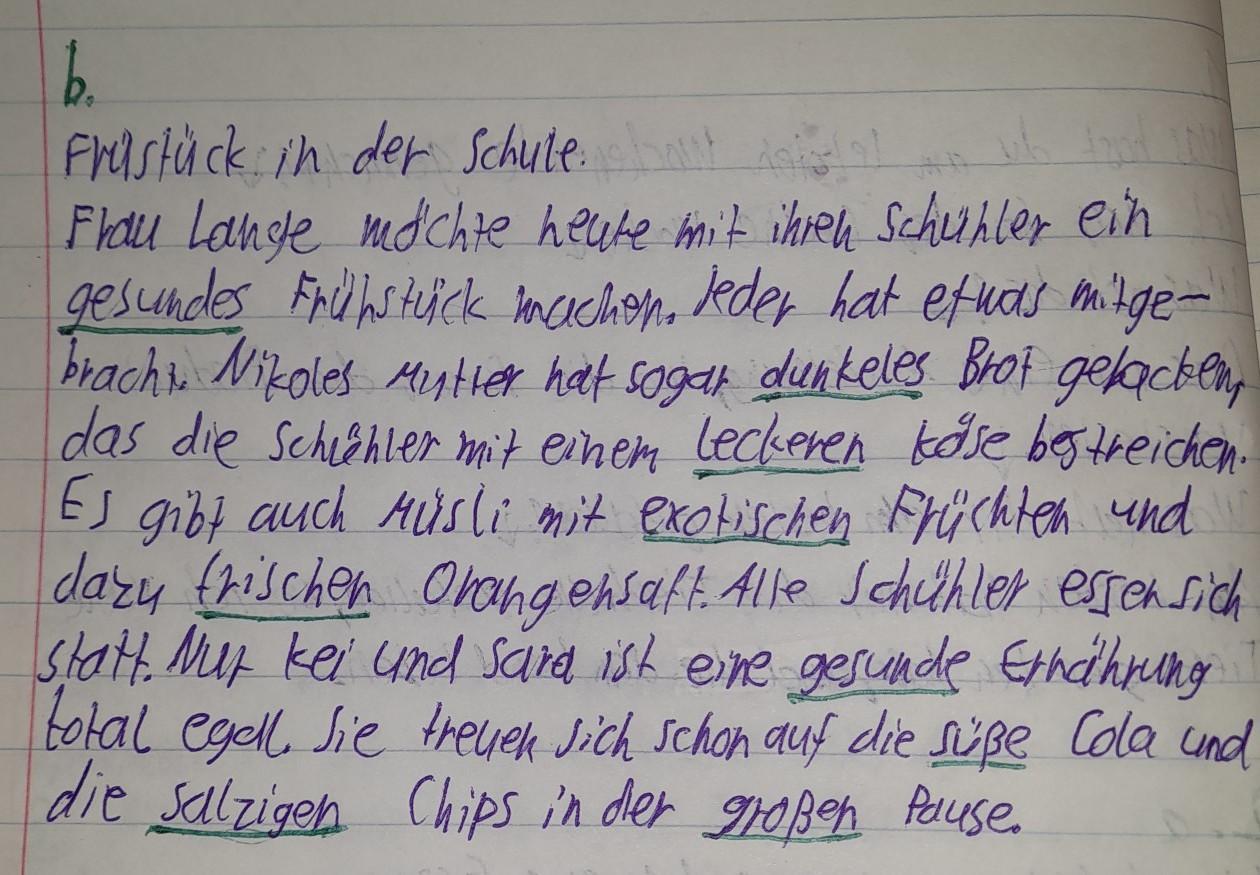 b.
Früstück in der Schule:
Frau Lange möchte heute mit ihren Schühler ein
gesundes Frühstück machen. Jeder hat etwas mitge-
bracht. Nikoles Mutter hat sogar dunkeles Brot gebacken,
das die Schühler mit einem leckeren Käse bestreichen.
Es gibt auch Müsli mit exotischen Früchten und
dazu frischen Orangensaft. Alle Schühler essen sich
statt. Nur Kei und Sara ist eine gesunde Ernährung
total egal. Sie freuen sich schon auf die süße Cola und
die salzigen Chips in der großen Pause.